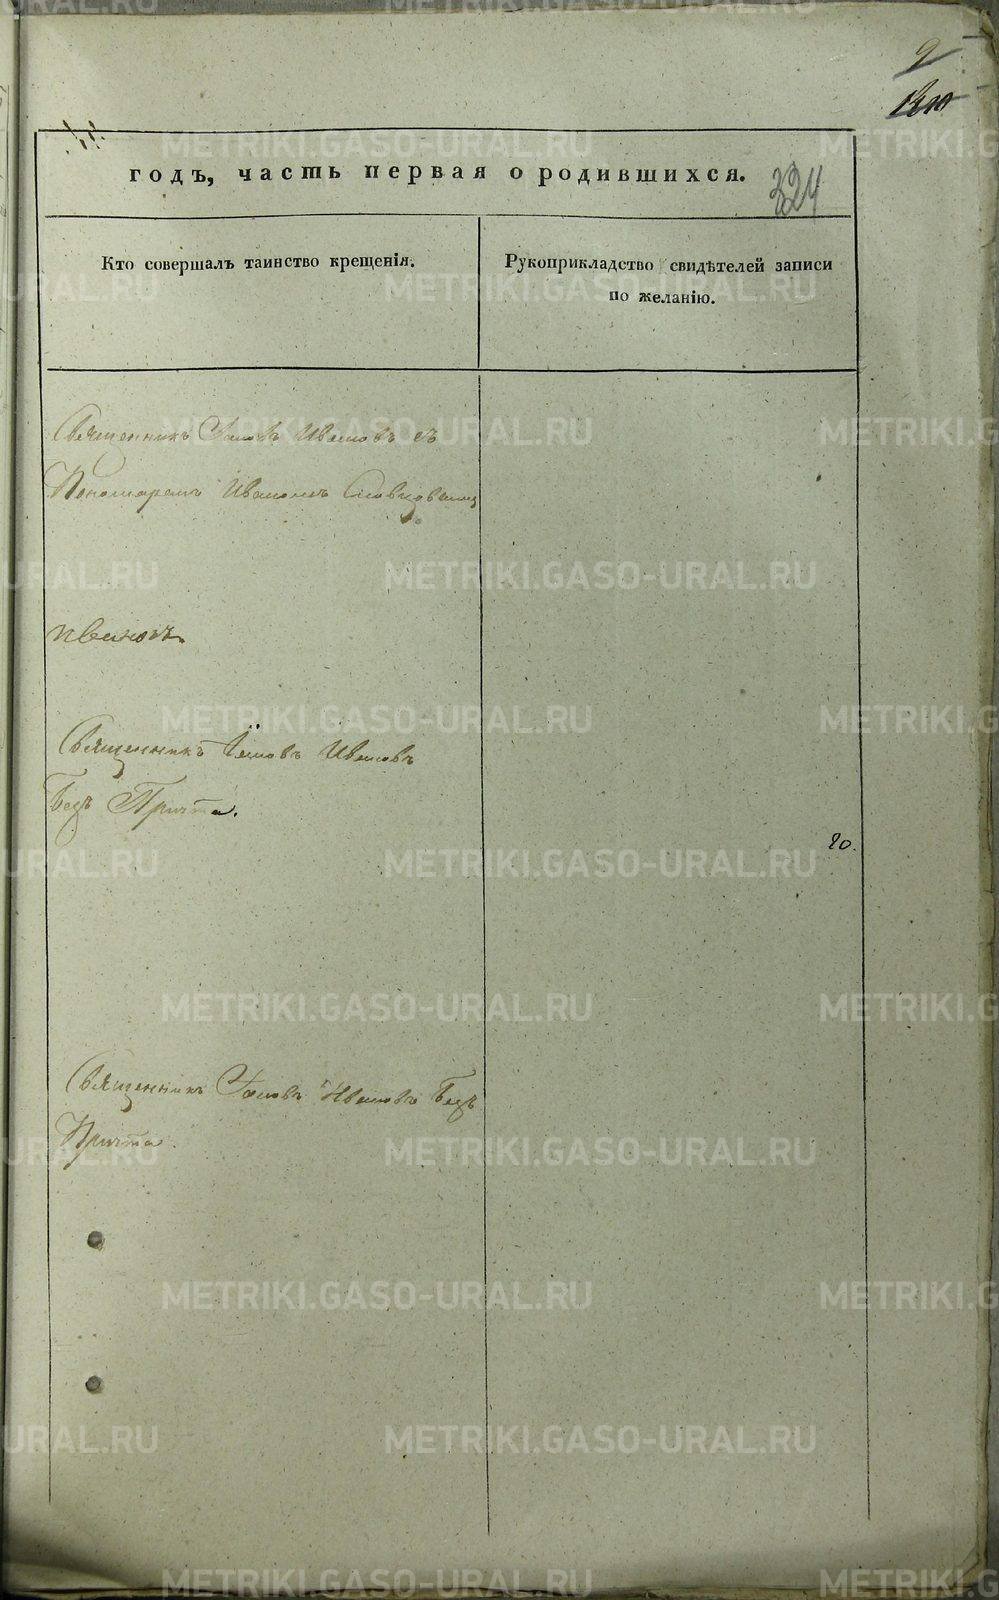 9
годъ, часть первая о родившихся.
324
Кто совершалъ таинство крещенія.
Рукоприкладство свидѣтелей записи
по желанію.
Священникъ Іаковъ Ивановъ съ
Пономаремъ Иваномъ
Священникъ Іаковъ Ивановъ
Безъ Причта.
20.
Священникъ Іаковъ Ивановъ Безъ
Причта.
METRIKI.GASO-URAL.RU